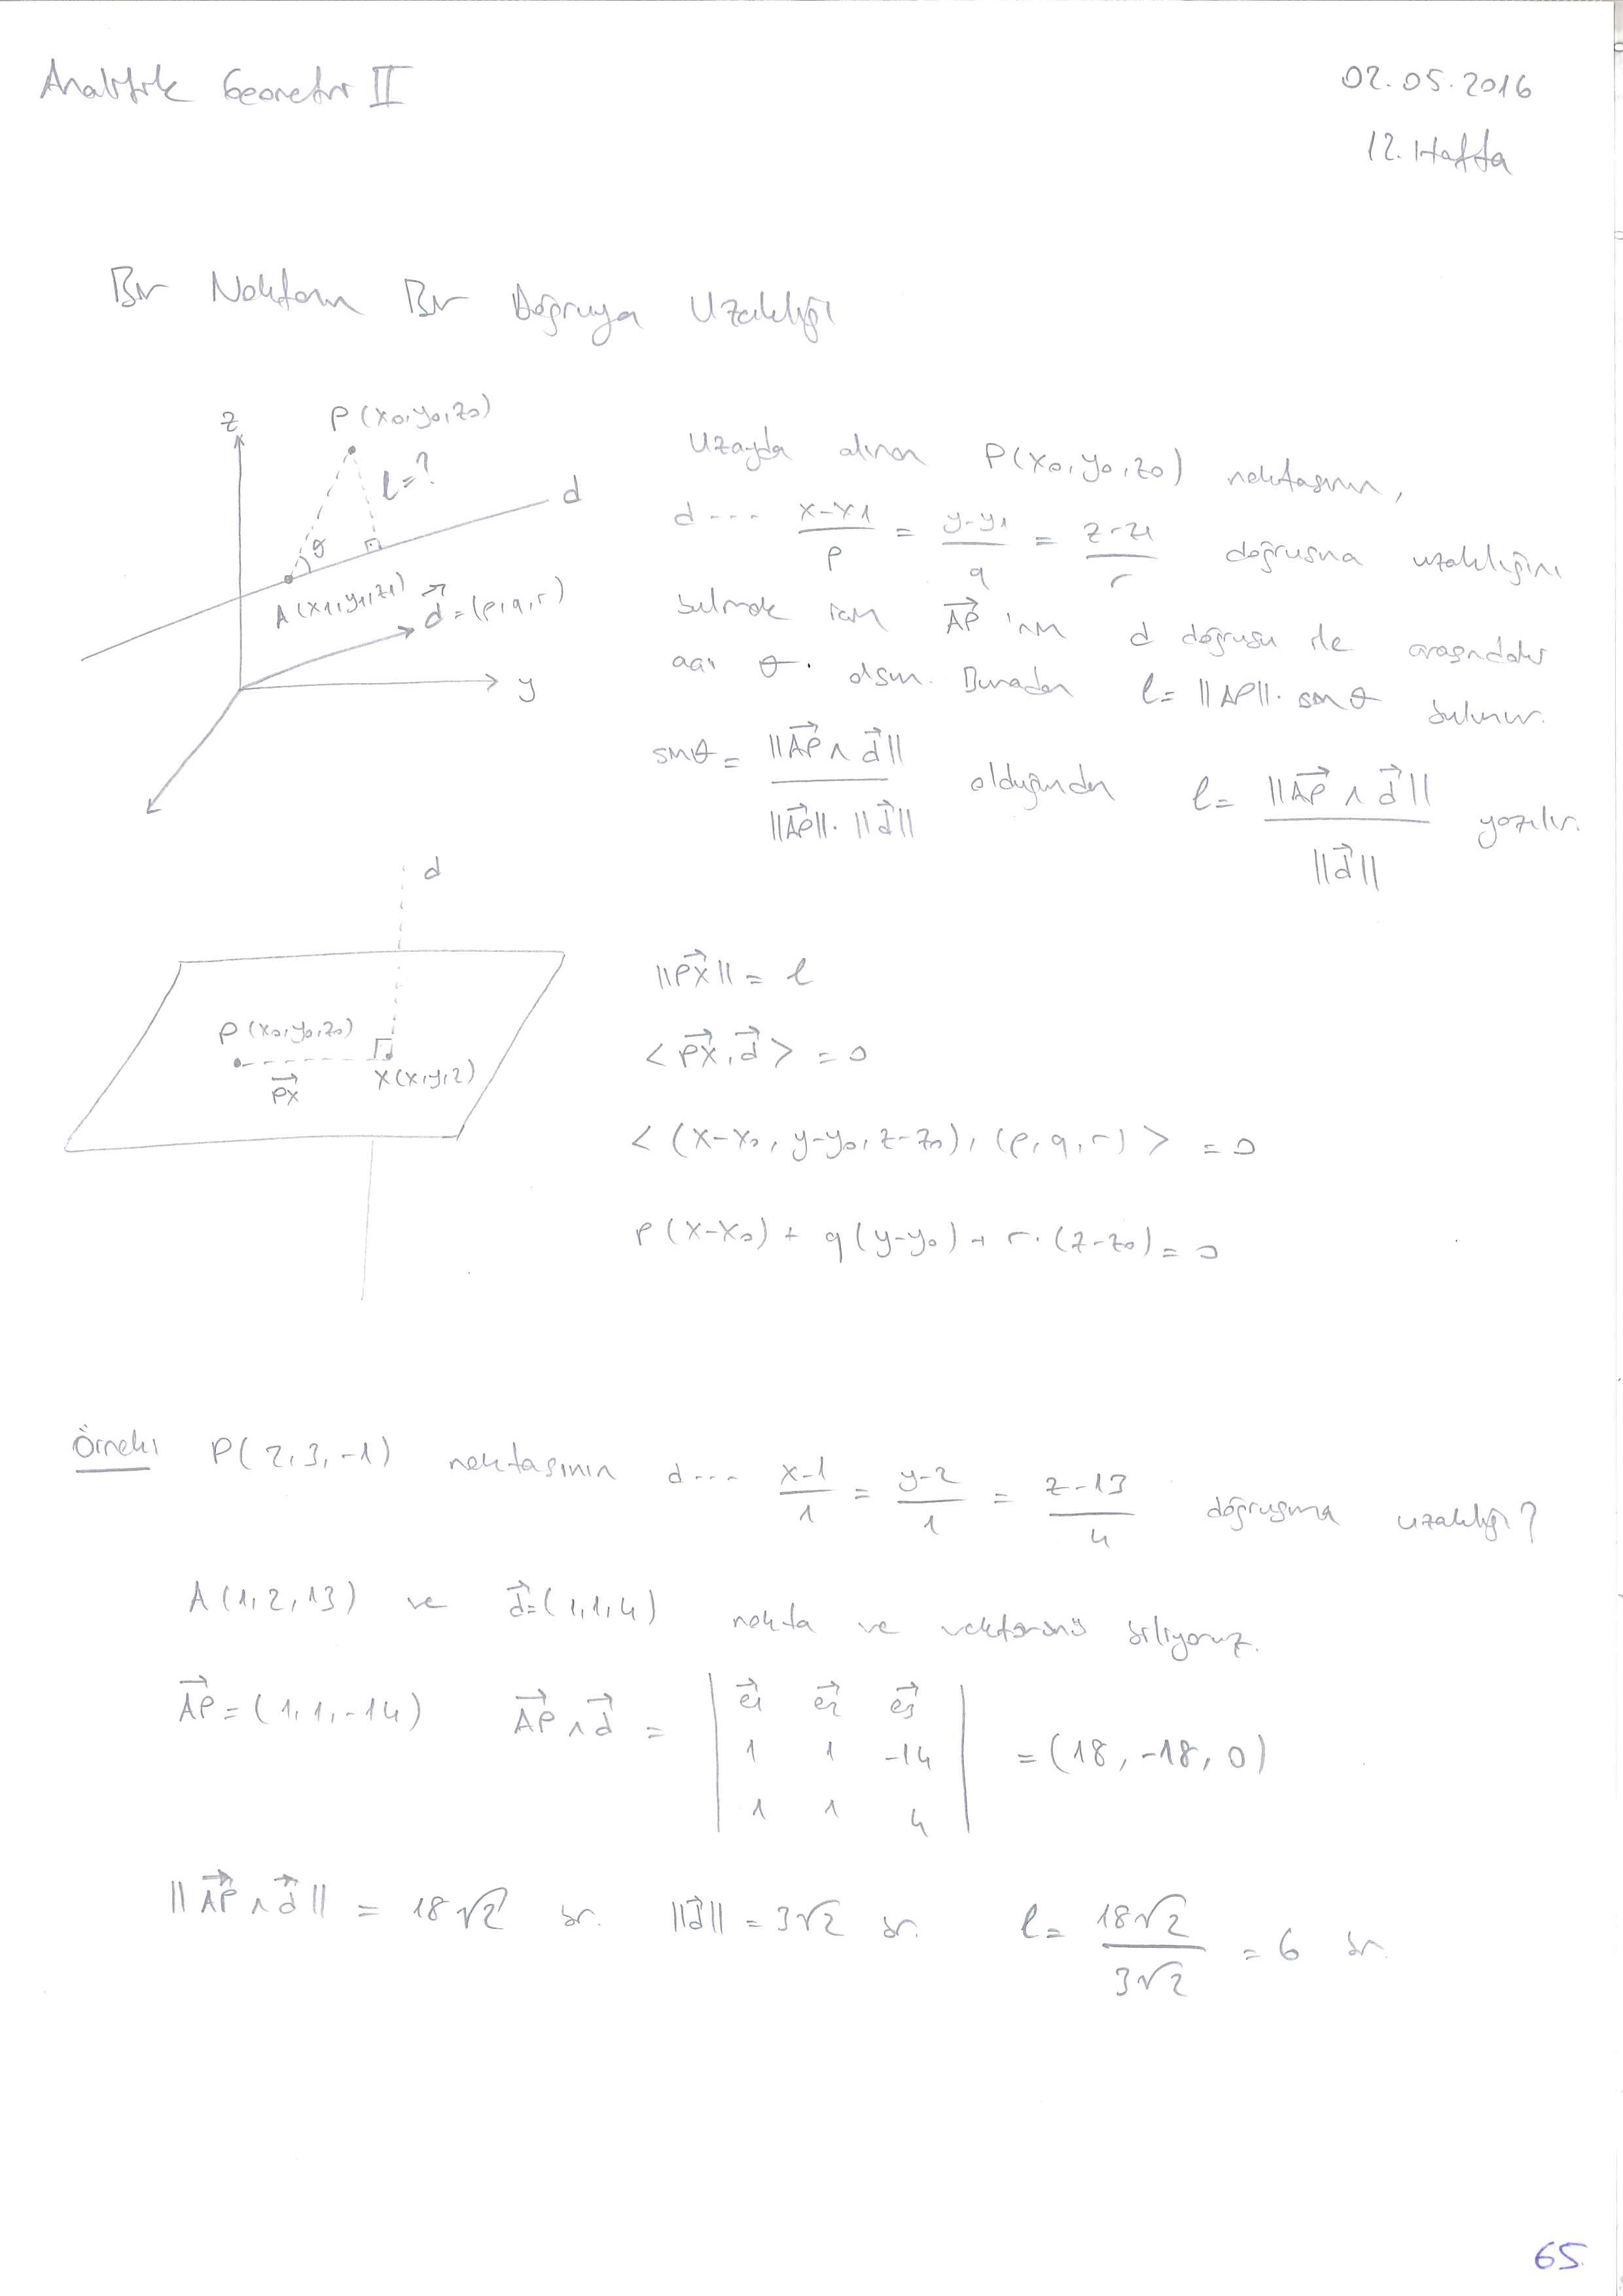 Analitik Geometri II
02.05.2016
12. Hafta
Bir Noktanın Bir Doğruya Uzaklığı
z
P(x0,y0,z0)
l=?
d
θ
A(x1,y1,z1)
d⃗=(p,q,r)
y
Uzayda alınan P(x0,y0,z0) noktasının,
d--- (x-x1)/p = (y-y1)/q = (z-z1)/r doğrusuna uzaklığını
bulmak için AP⃗ 'nın d doğrusu ile arasındaki
açı θ. olsun. Buradan l= ||AP||. sinθ bulunur.
sinθ = ||AP⃗ ∧ d⃗|| / ||AP⃗||.||d⃗|| olduğundan l= ||AP⃗ ∧ d⃗|| / ||d⃗|| yazılır.
d
P(x0,y0,z0)
PX⃗
X(x,y,z)
||PX⃗|| = l
<PX⃗,d⃗> = 0
<(x-x0, y-y0, z-z0), (p,q,r)> = 0
p(x-x0) + q(y-y0) + r.(z-z0) = 0
Örnek: P(2,3,-1) noktasının d--- (x-1)/1 = (y-2)/1 = (z-13)/4 doğrusuna uzaklığı?
A(1,2,13) ve d⃗=(1,1,4) nokta ve vektörünü biliyoruz.
AP⃗ = (1,1,-14) AP⃗∧d⃗ = | e1⃗ e2⃗ e3⃗ |
1 1 -14 = (18,-18,0)
1 1 4
||AP⃗∧d⃗|| = 18√2 br. ||d⃗|| = 3√2 br. l= 18√2 / 3√2 = 6 br.
65